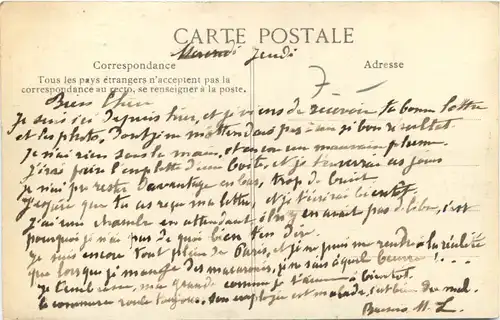 CARTE POSTALE
Mercredi Jeudi
Correspondance
Adresse
Tous les pays étrangers n'acceptent pas la
correspondance au recto, se renseigner à la poste.
7
Bien Chère
Je suis ici depuis hier, et je viens de recevoir ta bonne lettre
et les photo. Dont je ne m'attendais pas à un si bon résultat.
Je n'ai rien sous la main, et encore une mauvaise plume.
J'irai faire l'emplette d'une boîte, et je t'enverrai
je n'ai pu rester davantage en bas, trop de bruit.
J'espère que tu as reçu ma lettre, et je t'écrirai bientôt.
J'ai une chambre en attendant, il n'y en avait pas de libre, c'est
pourquoi je n'ai pas de quoi bien t'en dire.
Je suis encore tout plein de Paris, et je ne puis me rendre à la réalité
que lorsque je mange des macaronis, je ne sais à quel beurre !...
Je t'embrasse, ma grande comme je t'aime à bientôt.
le commerce roule toujours. Son employée est malade,